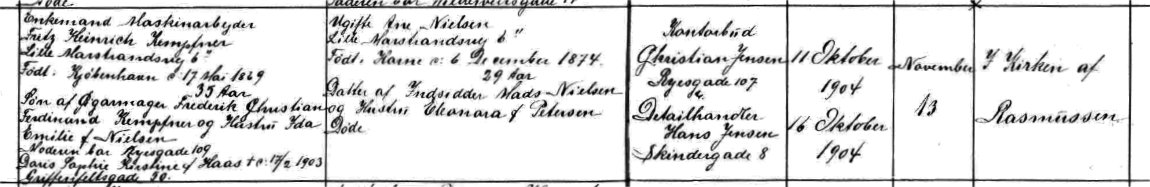 Enkemand Maskinarbejder
Fritz Heinrich Kempfner
Lille Marstrandsvej 6
Födt. Kjöbenhavn d: 17 Mai 1869
35 Aar
Sön af Cigarmager Frederik Christian
Ferdinand Kempfner og Hustru Ida
Emilie f Nielsen
Moderen bor Ryesgade 109
Doris Sophie Kirstine f Haas + d: 17/2 1903
Griffenfeldtsgade 20.
Ugifte Ane Nielsen
Lille Marstrandsvej 6"
Födt. Horne d: 6 December 1874.
29 Aar
Datter af Indsidder Mads Nielsen
og Hustru Eleonora f Petersen
Döde
Kontorbud
Christian Jensen
Ryesgade 107
4.
Detailhandler
Hans Jensen
Skindergade 8
11 Oktober
1904
16 Oktober
1904
November
13
I Kirken af
Rasmussen